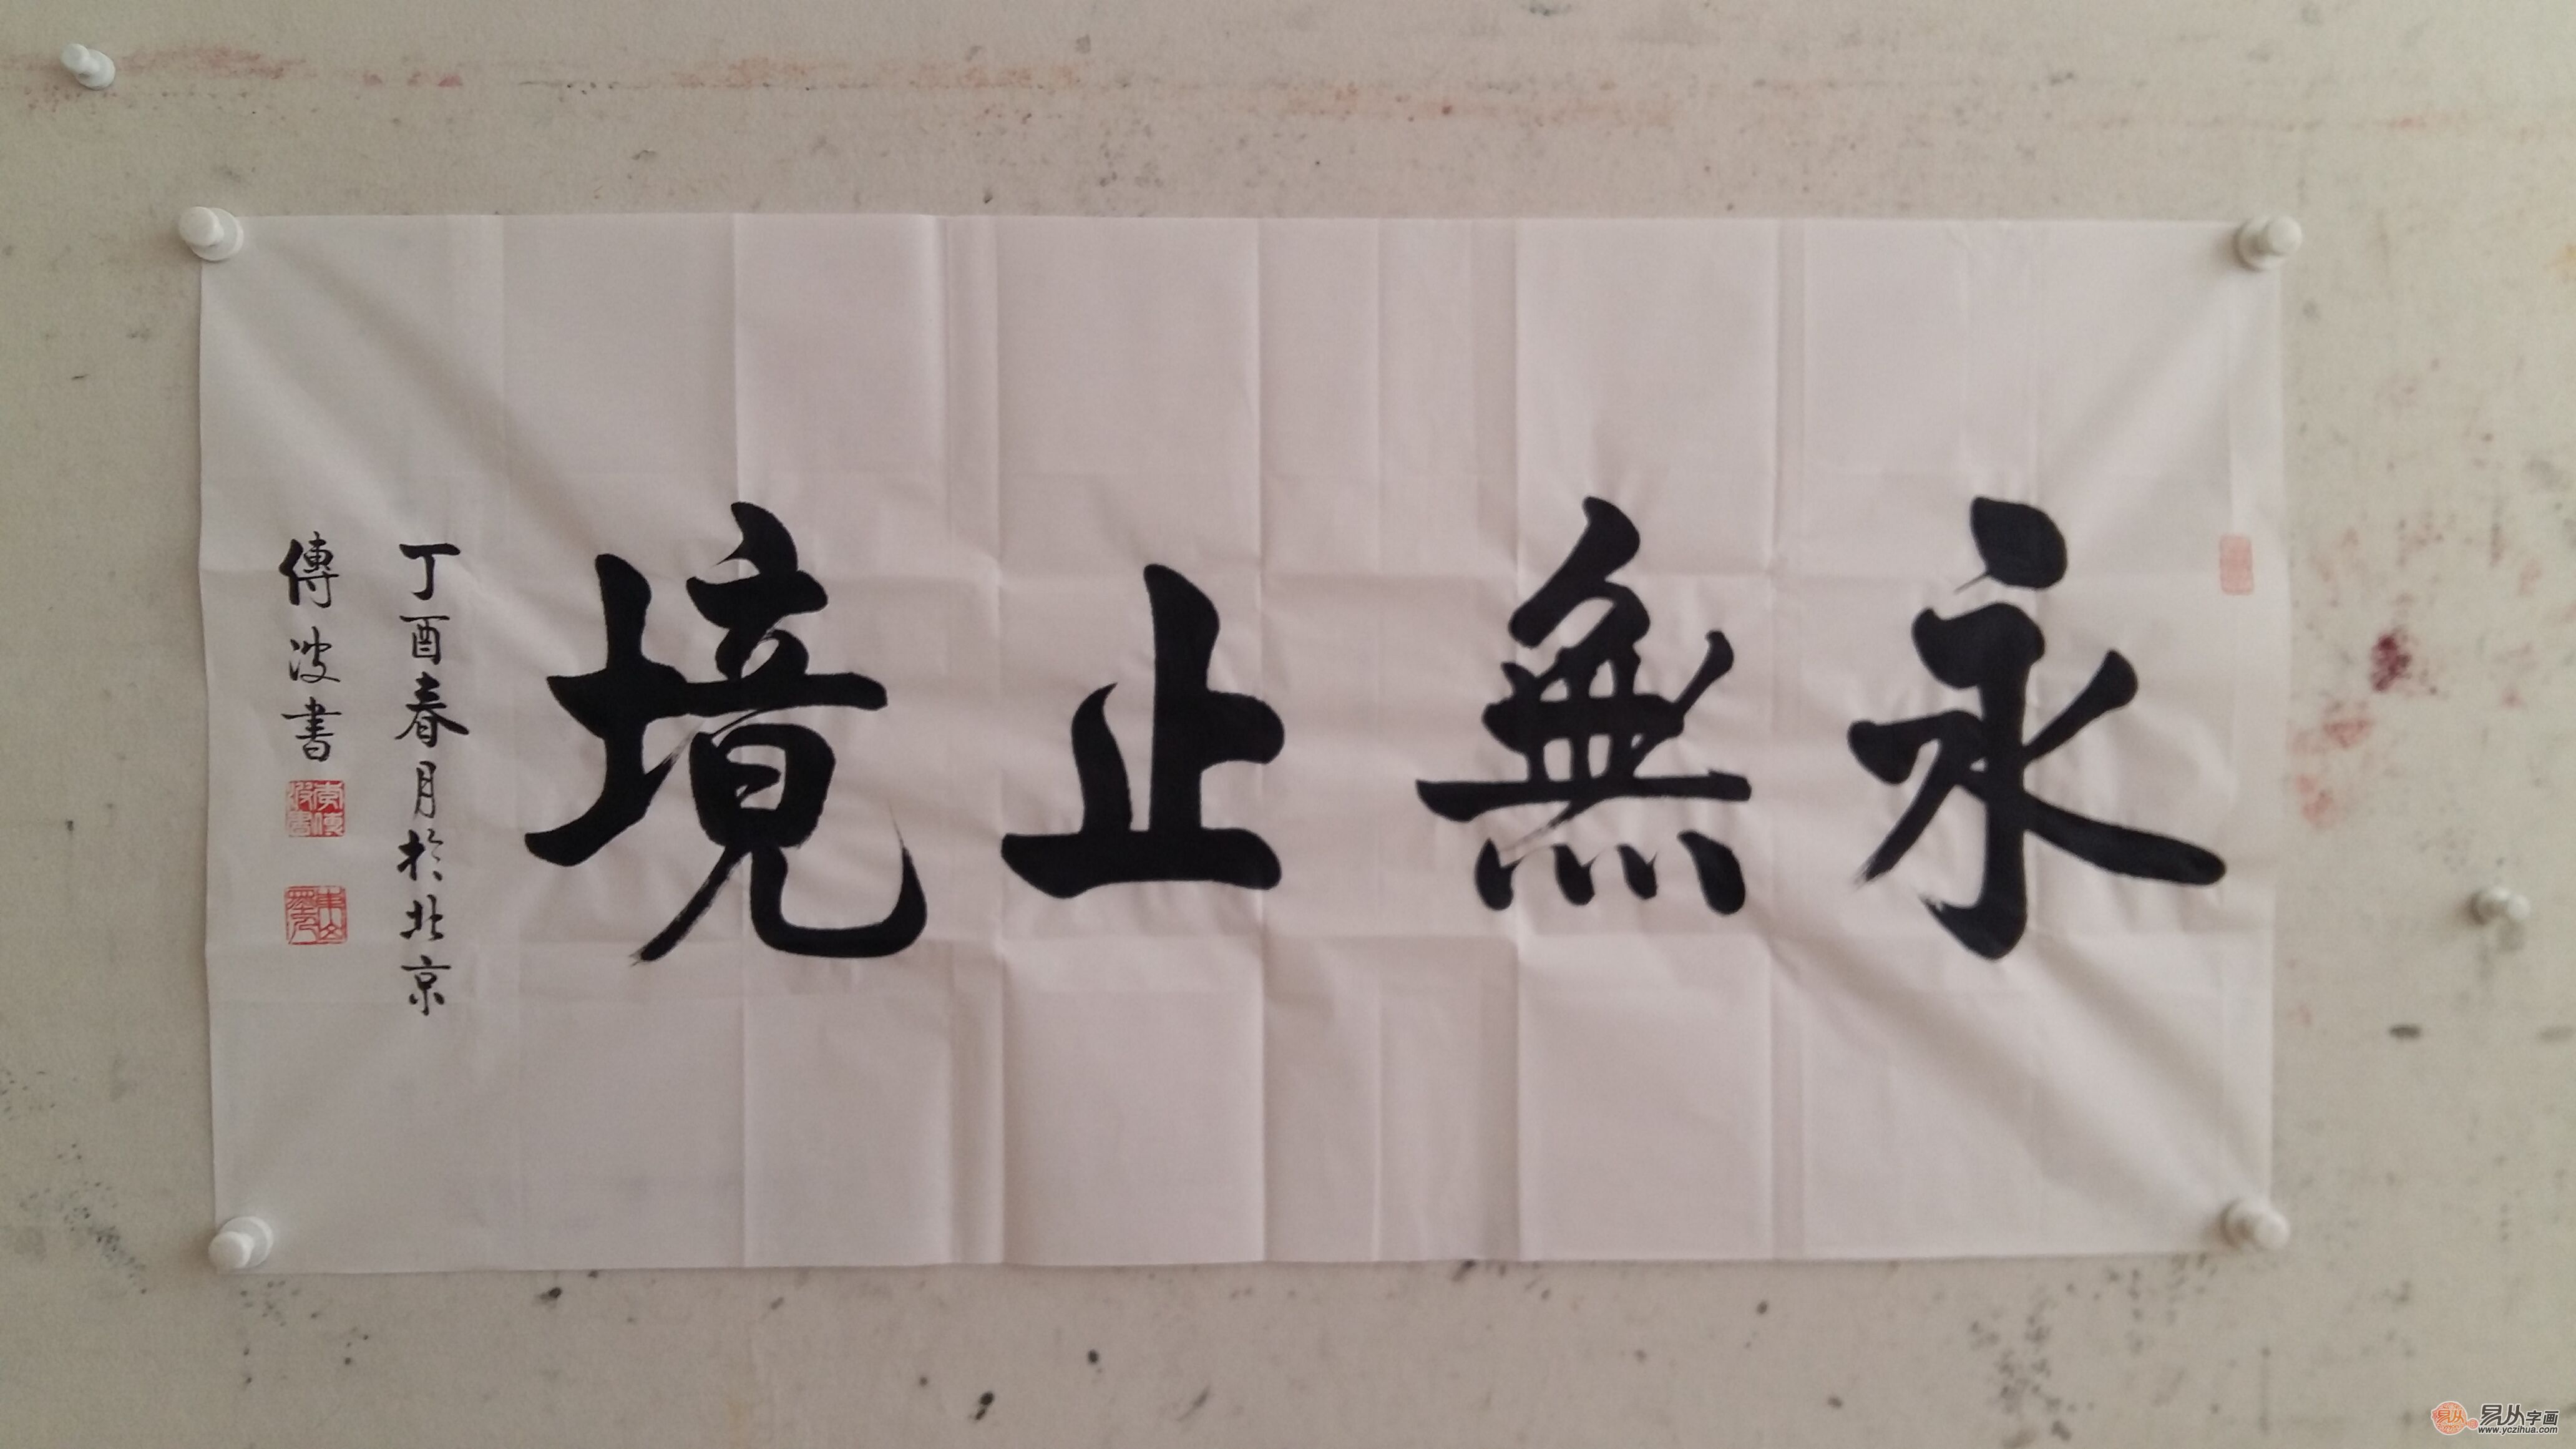 永無止境
丁酉春月於北京
傳波書
易从字画
www.yczihua.com